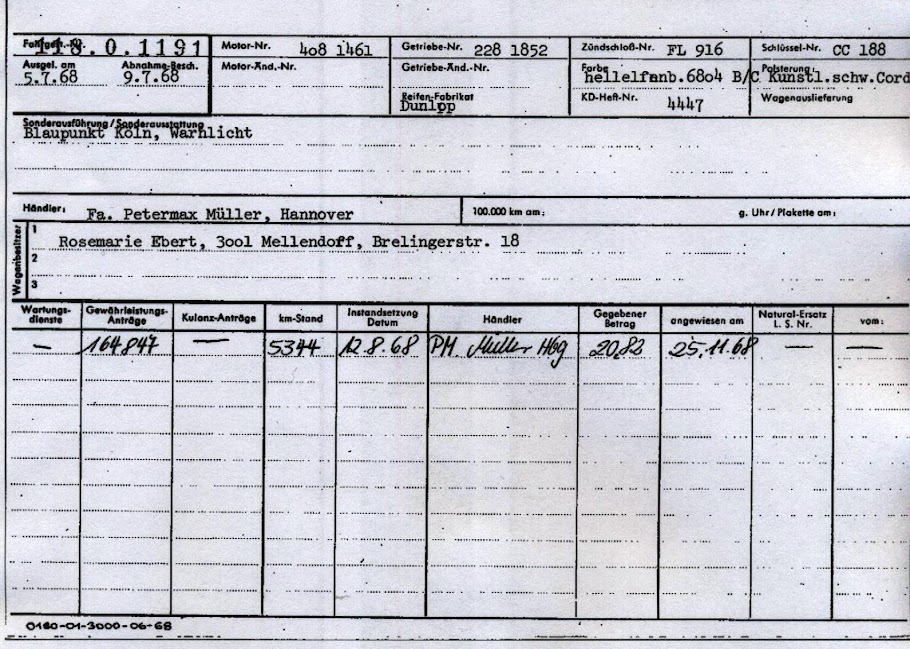 Fahrgest.-Nr. 118.0.1191 Motor-Nr. 408 1461 Getriebe-Nr. 228 1852 Zündschloß-Nr. FL 916 Schlüssel-Nr. CC 188
Ausgel. am Abnahme-Besch. Motor-Änd.-Nr. Getriebe-Änd.-Nr. Farbe Polsterung:
5.7.68 9.7.68 hellelfenb.6804 B/C Kunstl.schw.Cord
Reifen-Fabrikat KD-Heft-Nr. 4447 Wagenauslieferung
Dunlop
Sonderausführung/Sonderausstattung
Blaupunkt Köln, Warnlicht
Händler: Fa. Petermax Müller, Hannover 100.000 km am: g. Uhr/Plakette am:
Wagenbesitzer
1 Rosemarie Ebert, 3001 Mellendoff, Brelingerstr. 18
2
3
Wartungs-dienste Gewährleistungs-Anträge Kulanz-Anträge km-Stand Instandsetzung Datum Händler Gegebener Betrag angewiesen am Natural-Ersatz L. S. Nr. vom:
— 164847 — 5344 12.8.68 PM Müller Hbg 20,82 25.11.68 — —
0180-01-3000-06-68